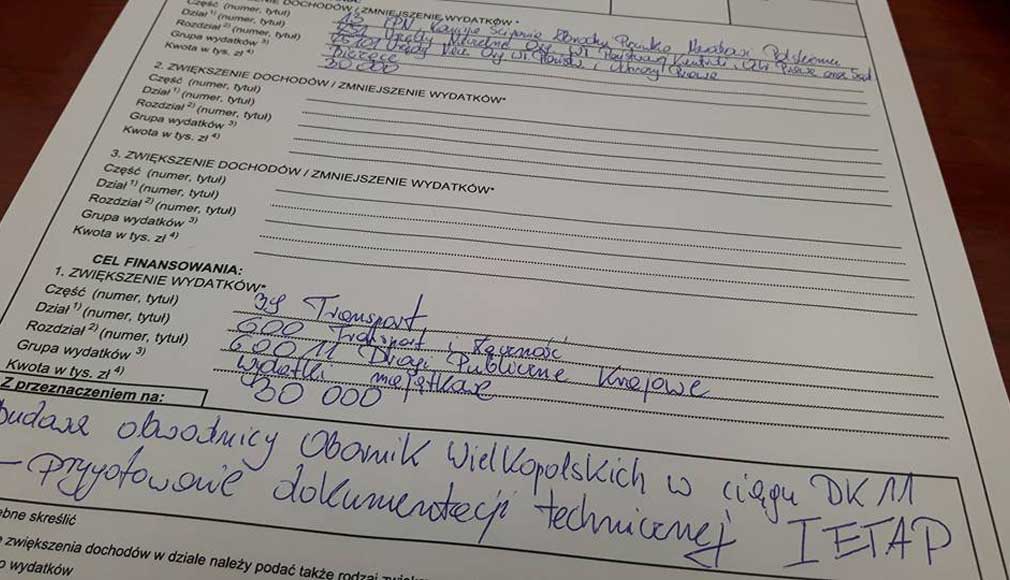 DOCHODÓW / ZMNIEJSZENIE WYDATKÓW*
Część (numer, tytuł) 13 IPN Komisja Ścigania Zbrodni Przeciwko Narodowi Polskiemu
Dział 1) (numer, tytuł) 751 Urzędy Naczelne Org. Wł. Państwowej, Kontroli i Ochr. Prawa oraz Sąd
Rozdział 2) (numer, tytuł) 75101 Urzędy Nacz. Org. Wł. Państw. i Ochrony Prawa
Grupa wydatków 3) Bieżące
Kwota w tys. zł 4) 30 000
2. ZWIĘKSZENIE DOCHODÓW / ZMNIEJSZENIE WYDATKÓW*
Część (numer, tytuł)
Dział 1) (numer, tytuł)
Rozdział 2) (numer, tytuł)
Grupa wydatków 3)
Kwota w tys. zł 4)
3. ZWIĘKSZENIE DOCHODÓW / ZMNIEJSZENIE WYDATKÓW*
Część (numer, tytuł)
Dział 1) (numer, tytuł)
Rozdział 2) (numer, tytuł)
Grupa wydatków 3)
Kwota w tys. zł 4)
CEL FINANSOWANIA:
1. ZWIĘKSZENIE WYDATKÓW*
Część (numer, tytuł) 39 Transport
Dział 1) (numer, tytuł) 600 Transport i Łączność
Rozdział 2) (numer, tytuł) 60011 Drogi Publiczne Krajowe
Grupa wydatków 3) wydatki majątkowe
Kwota w tys. zł 4) 30 000
Z przeznaczeniem na:
budowa obwodnicy Obornik Wielkopolskich w ciągu DK 11
– przygotowanie dokumentacji technicznej I ETAP
ebne skreślić
zwiększenia dochodów w dziale należy podać także rodzaj
o wydatków